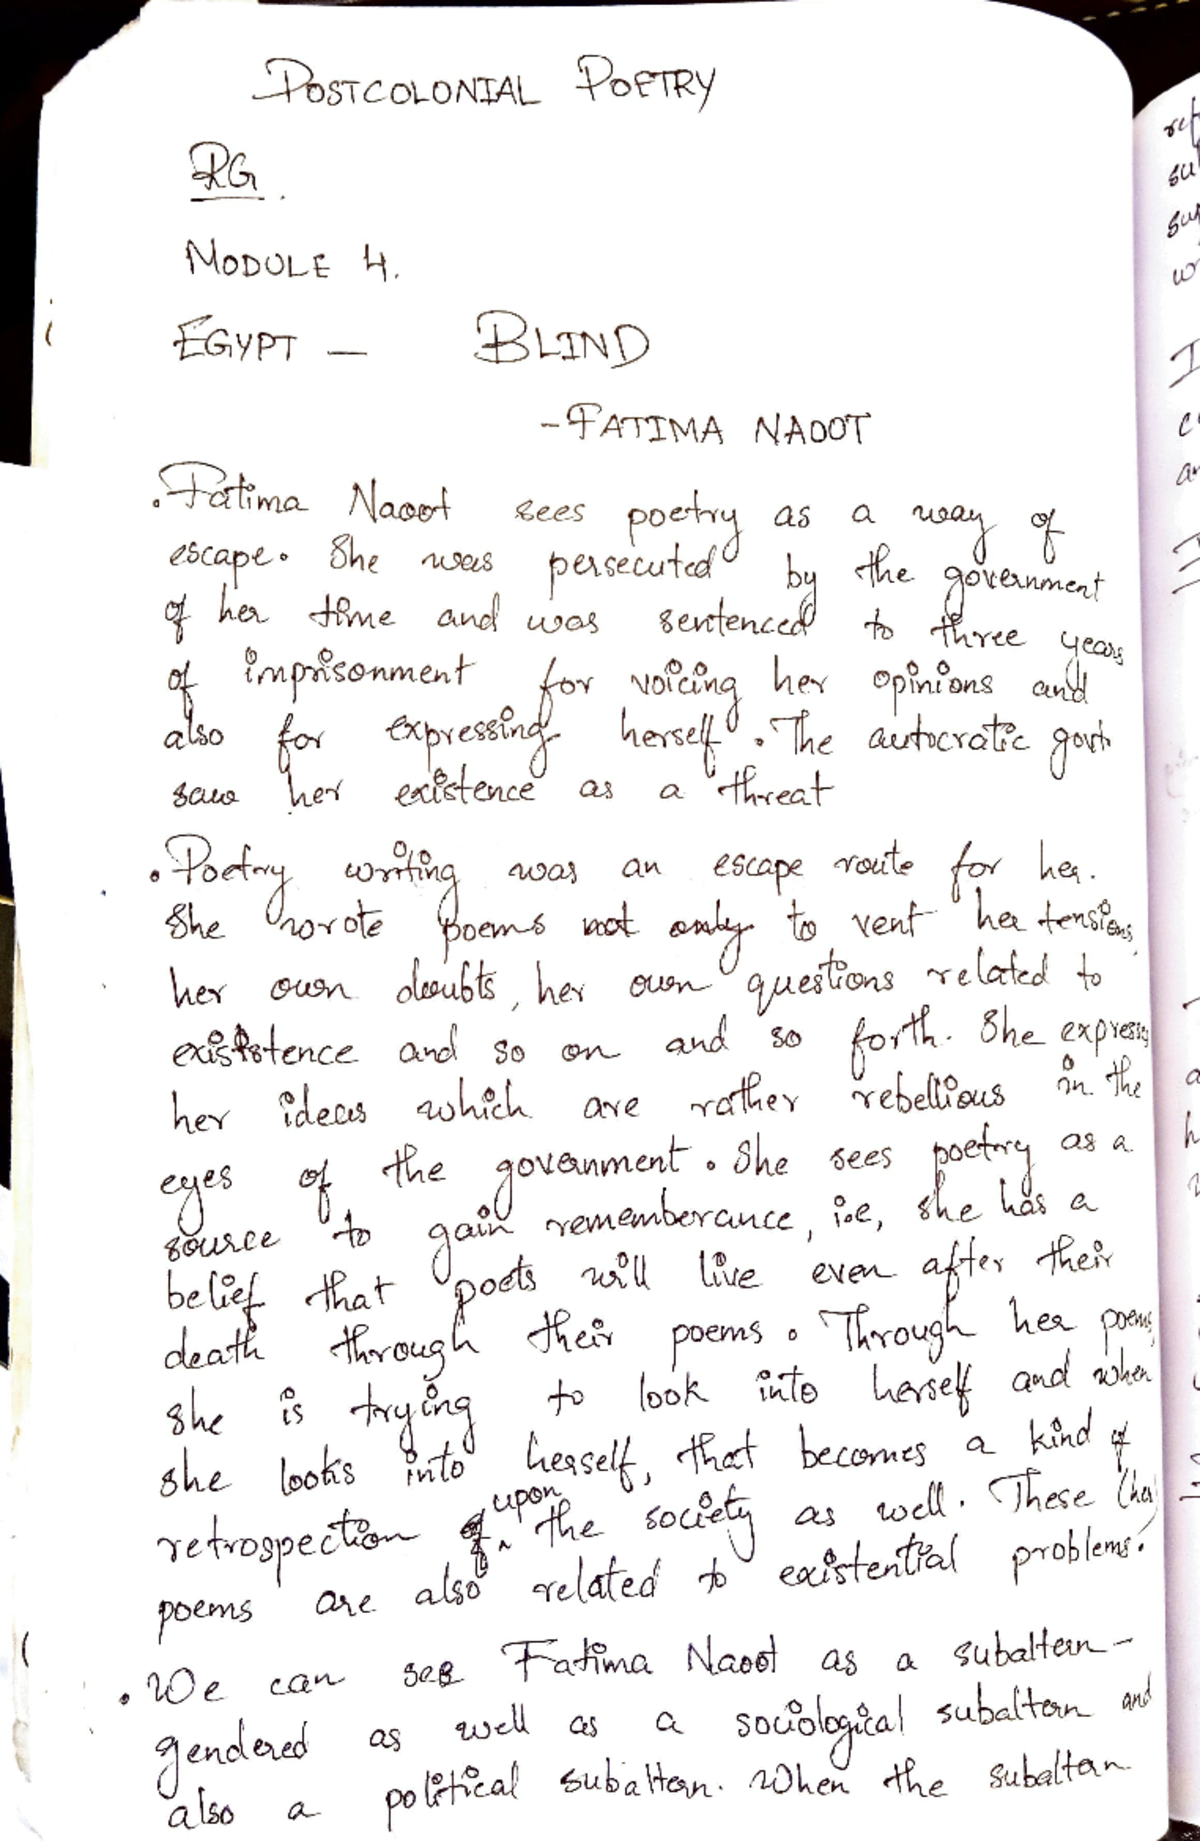 POSTCOLONIAL POETRY
RG.
MODULE 4.
EGYPT — BLIND
-FATIMA NAOOT
• Fatima Naoot sees poetry as a way of
escape. She was persecuted by the government
of her time and was sentenced to three years
of imprisonment for voicing her opinions and
also for expressing herself. The autocratic govt
saw her existence as a threat
• Poetry writing was an escape route for her.
She wrote poems not only to vent her tensions,
her own doubts, her own questions related to
existence and so on and so forth. She express
her ideas which are rather rebellious in the
eyes of the government. She sees poetry as a
source to gain rememberance, i.e, she has a
belief that poets will live even after their
death through their poems. Through her poems,
she is trying to look into herself and when
she looks into herself, that becomes a kind of
retrospection upon the society as well. These (her)
poems are also related to existential problems.
• We can see Fatima Naoot as a subaltern -
gendered as well as a sociological subaltern and
also a political subaltern. When the subaltern